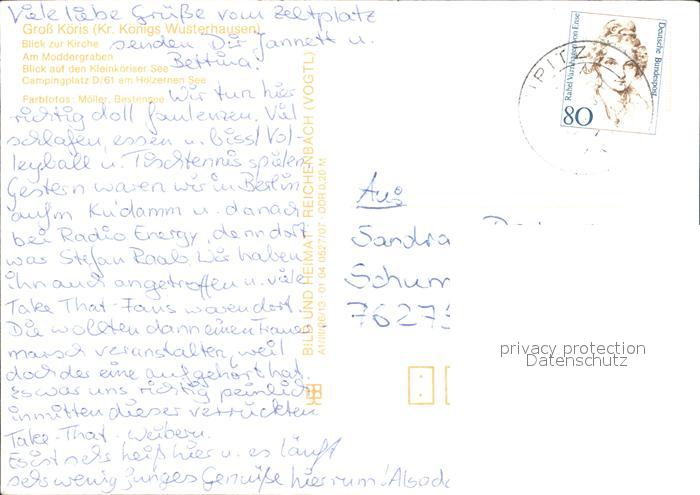 Viele liebe Grüße vom Zeltplatz
Groß Köris (Kr. Königs Wusterhausen)
Blick zur Kirche
senden Dir Jannett u.
Am Moddergraben
Bettina!
Blick auf den Kleinköriser See
Campingplatz D/61 am Hölzernen See
Farbfotos: Möller, Bestensee
Wir tun hier
richtig doll faulenzen. Viel
schlafen, essen u. bissl Vol-
leyball u. Tischtennis spielen.
Gestern waren wir in Berlin
aufm Ku'damm u. danach
bei Radio Energy, denn dort
war Stefan Raab. Wir haben
ihn auch angetroffen u. viele
Take That-Fans waren dort.
Die wollten dann einen Trauer
marsch veranstalten, weil
doch der eine aufgehört hat.
Es war uns richtig peinlich
inmitten dieser verrückten
Take-That-Weibern.
Es ist sehr heiß hier u. es läuft
sehr wenig junges Gemüse hier rum! Also
BILD UND HEIMAT REICHENBACH (VOGTL)
A1/III/26/13 01 04 0527/07 DDR 0,20 M
Deutsche Bundespost
Rahel Varnhagen von Ense
80
An
Sandra
Schum
76275
privacy protection
Datenschutz